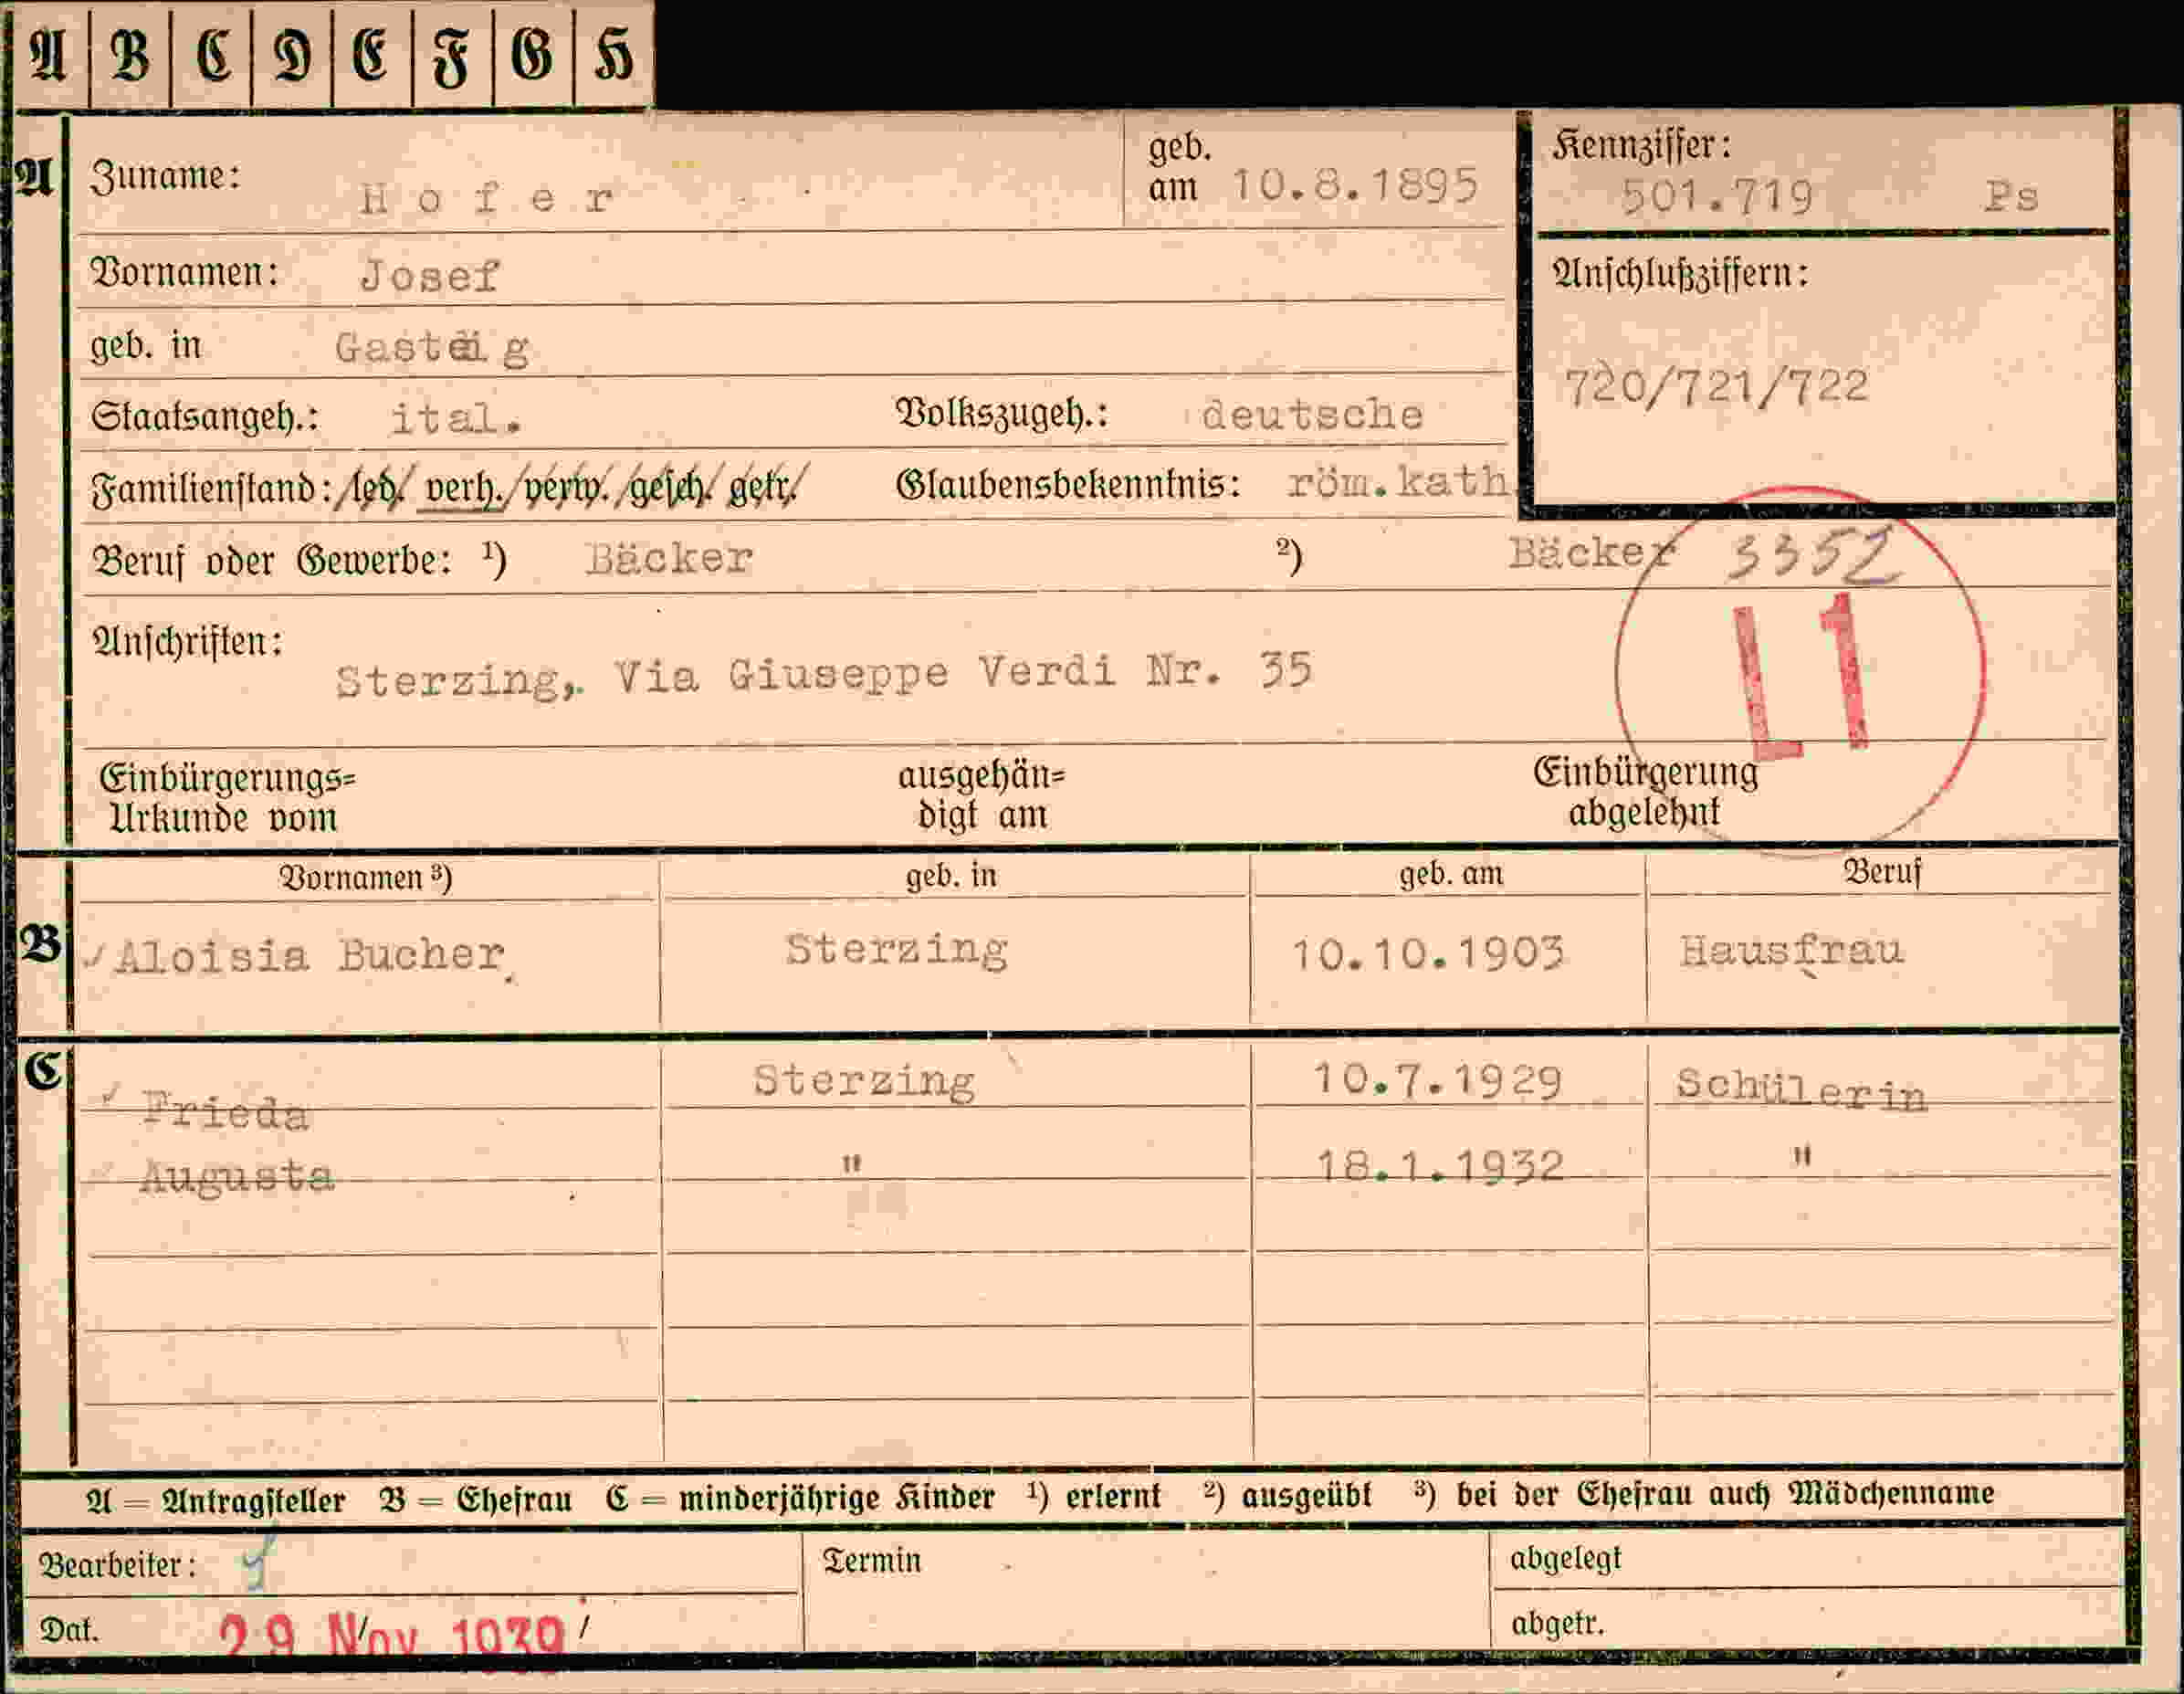 A B C D E F G H
A Zuname: Hofer geb. am 10.8.1895 Kennziffer: 501.719 Ps
Vornamen: Josef Anschlußziffern:
geb. in Gasteig 720/721/722
Staatsangeh.: ital. Volkszugeh.: deutsche
Familienstand: /led./ verh./verw./gesch./getr./ Glaubensbekenntnis: röm.kath.
Beruf oder Gewerbe: ¹) Bäcker ²) Bäcker 3352
Anschriften: Sterzing, Via Giuseppe Verdi Nr. 35 L1
Einbürgerungs= ausgehän= Einbürgerung
Urkunde vom digt am abgelehnt
Vornamen ³) geb. in geb. am Beruf
B Aloisia Bucher Sterzing 10.10.1903 Hausfrau
C Frieda Sterzing 10.7.1929 Schülerin
Augusta " 18.1.1932 "
A = Antragsteller B = Ehefrau C = minderjährige Kinder ¹) erlernt ²) ausgeübt ³) bei der Ehefrau auch Mädchenname
Bearbeiter: Termin abgelegt
Dat. 29 Nov 1939 abgetr.